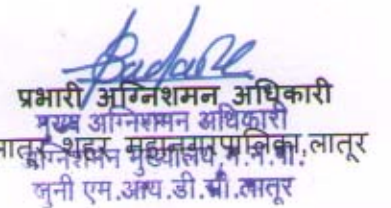 प्रभारी अग्निशमन अधिकारी
मुख्य अग्निशमन अधिकारी
लातूर शहर महानगरपालिका,लातूर
अग्निशमन मुख्यालय, म.न.पा.
जुनी एम.आय.डी.सी.लातूर